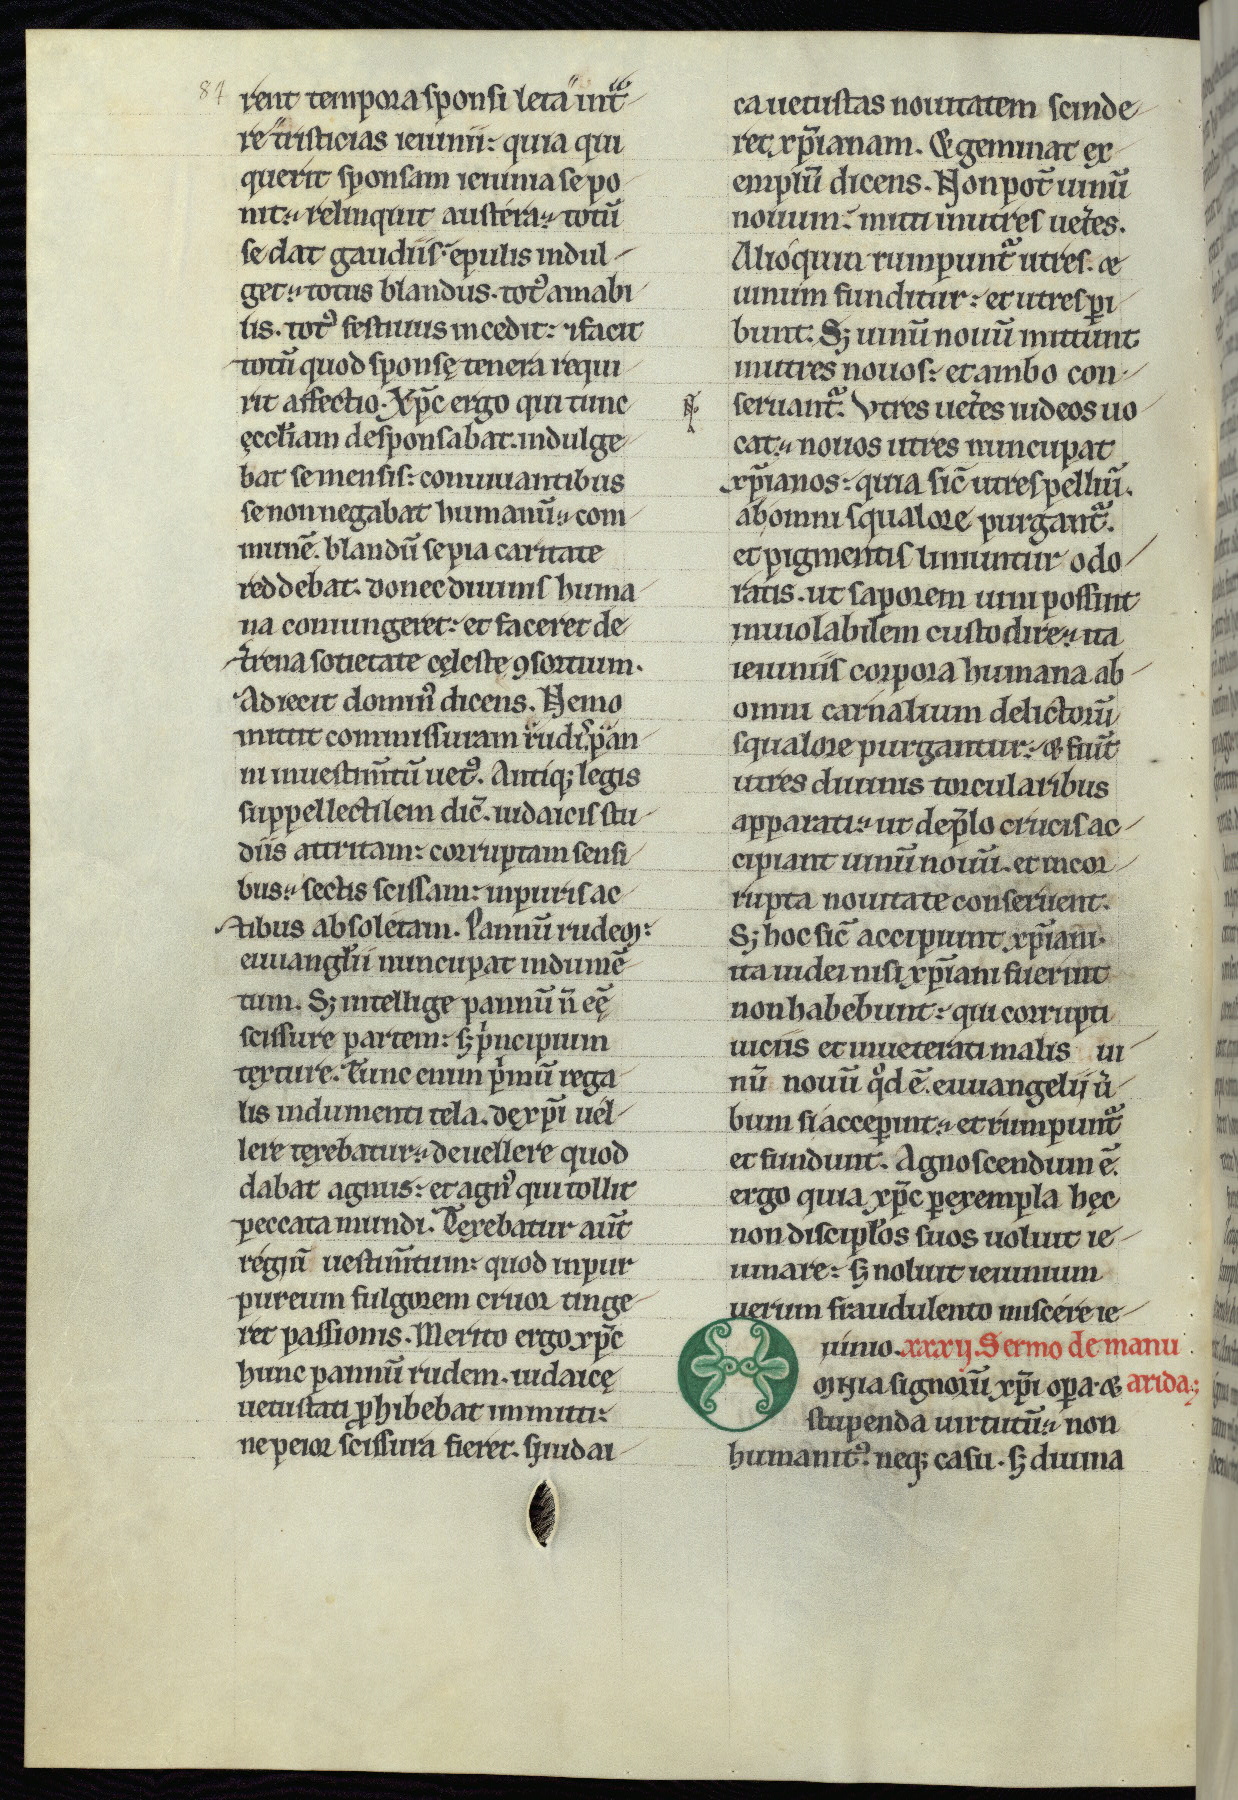 87
rent tempora sponsi leta int̃
re tristicias ieiunii: quia qui
querit sponsam ieiunia sepo
nit: relinquit austera: totũ
se dat gaudiis: epulis indul
get: totus blandus. totꝰ amabi
lis. totꝰ festiuus incedit: ⁊ facit
totũ quod sponsę tenera requi
rit affectio. Xp̃c ergo qui tunc
ęccłiam desponsabat. indulge
bat se mensis: conuiuantibus
se non negabat humanũ: com
munẽ. blandũ se pia caritate
reddebat. donec diuinis huma
na coniungeret: et faceret de
t̃rena sotietate cęleste ꝯsortium.
Adiecit dominꝰ dicens. Nemo
mittit commissuram rudis pan
ni in uestim̃tũ uetꝰ. Antiq; legis
suppellectilem dic̃. iudaicis stu
diis attritam: corruptam sensi
bus: sectis scissam: inpuris ac
tibus absoletam. Pannũ rudem:
euuangłii nuncupat indumẽ
tum. Sꝫ intellige pannũ ñ eẽ
scissure partem: sꝫ pͥncipium
texture. Tunc enim pͥmũ rega
lis indumenti tela. de xp̃i uel
lere texebatur: de uellere quod
dabat agnus: et agnꝰ qui tollit
peccata mundi. Texebatur aut̃
regiũ uestim̃tum: quod inpur
pureum fulgorem cruor tinge
ret passionis. Merito ergo xp̃c
hunc pannũ rudem. iudaicę
uetustati ꝓhibebat inmitti:
ne peior scissura fieret. sꝫ iudai
ca uetustas nouitatem scinde
ret xp̃ianam. & geminat ex
emplũ dicens. Non pot̃ uinũ
nouum: mitti in utres uet̃es.
Alioquin rumpunt̃ utres. &
uinum funditur: et utres ꝑi
bunt. Sꝫ uinũ nouũ mittunt
in utres nouos: et ambo con
seruant̃. Vtres uet̃es iudeos uo
cat: nouos utres nuncupat
xp̃ianos: quia sic̃ utres pelliũ.
ab omni squalore purgant̃.
et pigmentis liniuntur odo
ratis. ut saporem uini possint
inuiolabilem custodire: ita
ieiuniis corpora humana ab
omni carnalium delictorũ
squalore purgantur: & fiunt̃
utres diuinis torcularibus
apparati: ut de p̃lo crucis ac
cipiant uinũ nouũ. et incor
rupta nouitate conseruent.
Sꝫ hoc sic̃ accipiunt xp̃iani.
ita iudei nisi xp̃iani fuerint
non habebunt: qui corrupti
uiciis et inueterati malis ui
nũ nouũ qͦd ẽ. euuangelij ũ
bum si acceꝑint: et rumpunt̃
et fundunt. Agnoscendum ẽ.
ergo quia xp̃c ꝑ exempla hęc
non discipłos suos uoluit ie
iunare: sꝫ noluit ieiunium
uerum fraudulento miscere ie
iunio. xxxij. Sermo de manu
OMNIA signorũ xp̃i oꝑa. & arida.
stupenda uirtutũ: non
humanitꝰ. neq; casu. sꝫ diuina